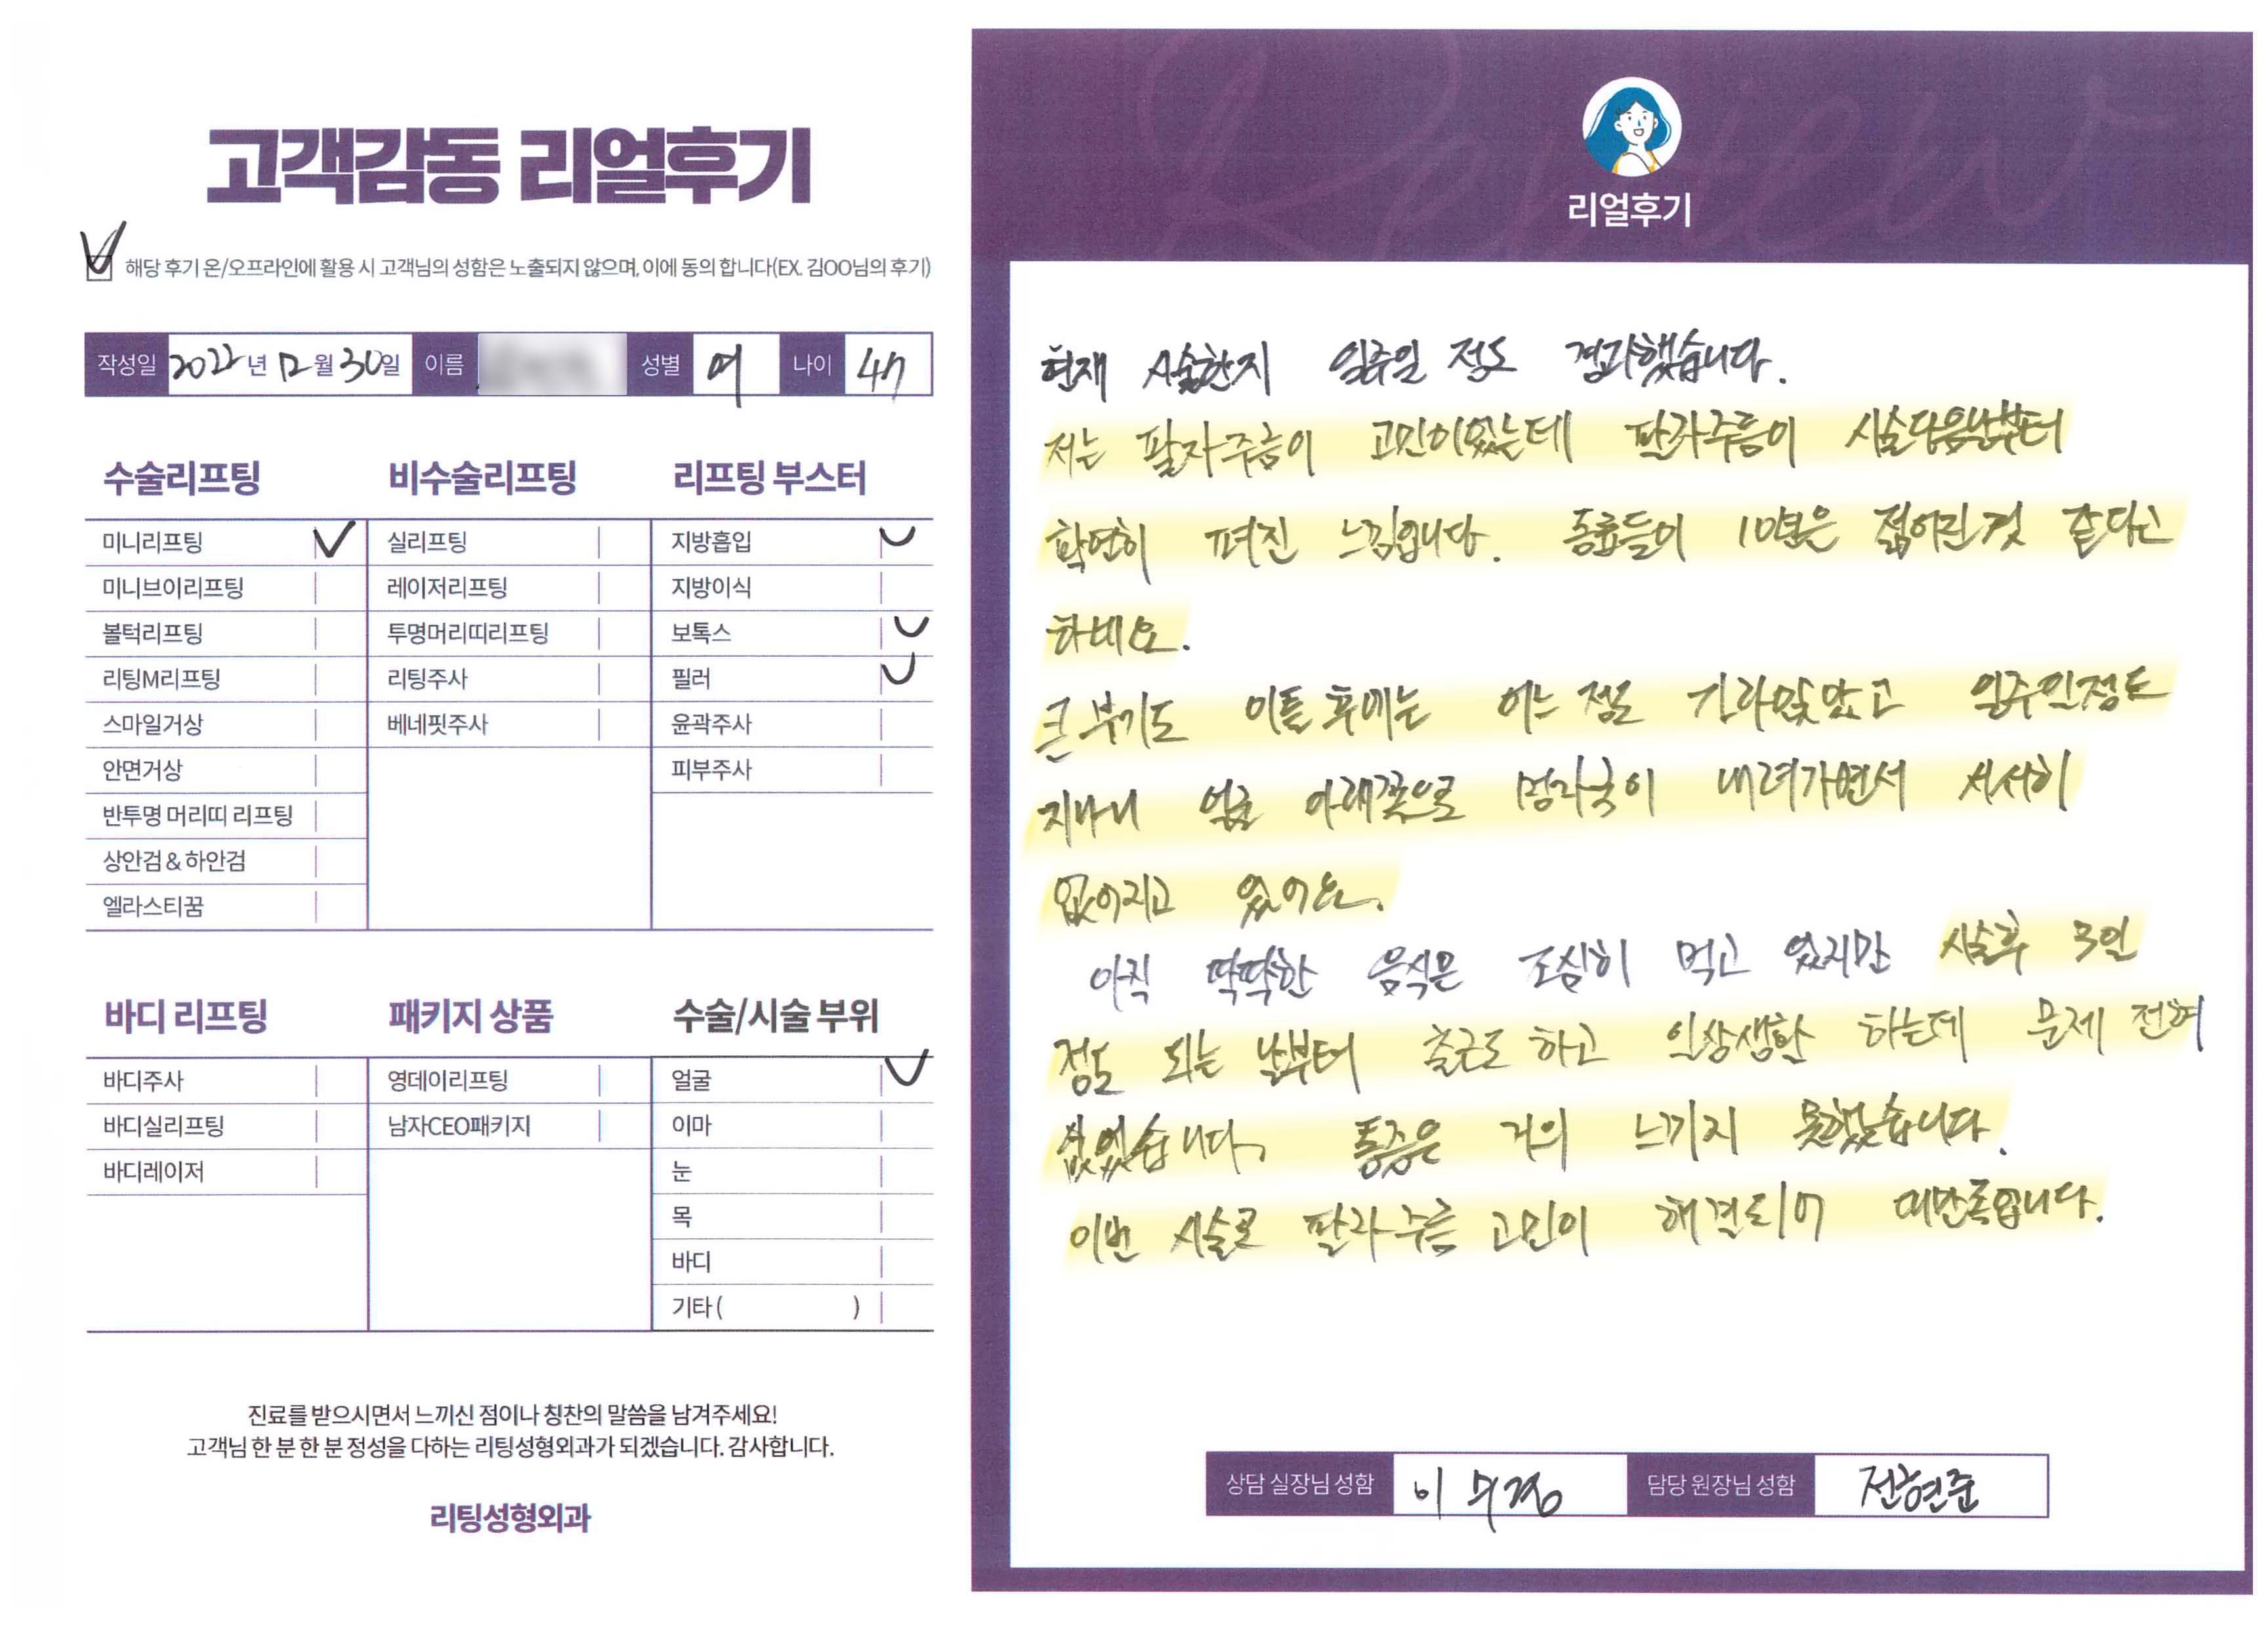 고객감동 리얼후기
해당 후기 온/오프라인에 활용 시 고객님의 성함은 노출되지 않으며, 이에 동의 합니다(EX. 김OO님의 후기)
작성일 2022년 12월 30일 이름 성별 여 나이 47
수술리프팅
미니리프팅
미니브이리프팅
볼턱리프팅
리팅M리프팅
스마일거상
안면거상
반투명 머리띠 리프팅
상안검 & 하안검
엘라스티꿈
비수술리프팅
실리프팅
레이저리프팅
투명머리띠리프팅
리팅주사
베네핏주사
리프팅 부스터
지방흡입
지방이식
보톡스
필러
윤곽주사
피부주사
바디 리프팅
바디주사
바디실리프팅
바디레이저
패키지 상품
영데이리프팅
남자CEO패키지
수술/시술 부위
얼굴
이마
눈
목
바디
기타 ( )
진료를 받으시면서 느끼신 점이나 칭찬의 말씀을 남겨주세요!
고객님 한 분 한 분 정성을 다하는 리팅성형외과가 되겠습니다. 감사합니다.
리팅성형외과
Review
리얼후기
현재 시술한지 일주일 정도 경과했습니다.
저는 팔자주름이 고민이었는데 팔자주름이 시술다음날부터
확연히 펴진 느낌입니다. 동료들이 10년은 젊어진것 같다고
하네요.
큰 부기도 이틀 후에는 어느 정도 가라앉았고 일주일정도
지나니 얼굴 아래쪽으로 멍자국이 내려가면서 서서히
없어지고 있어요.
아직 딱딱한 음식은 조심히 먹고 있지만 시술후 3일
정도 되는 날부터 출근도 하고 일상생활 하는데 문제 전혀
없었습니다. 통증은 거의 느끼지 못했습니다.
이번 시술로 팔자주름 고민이 해결되어 대만족입니다.
상담 실장님 성함 이 담당 원장님 성함 전현준